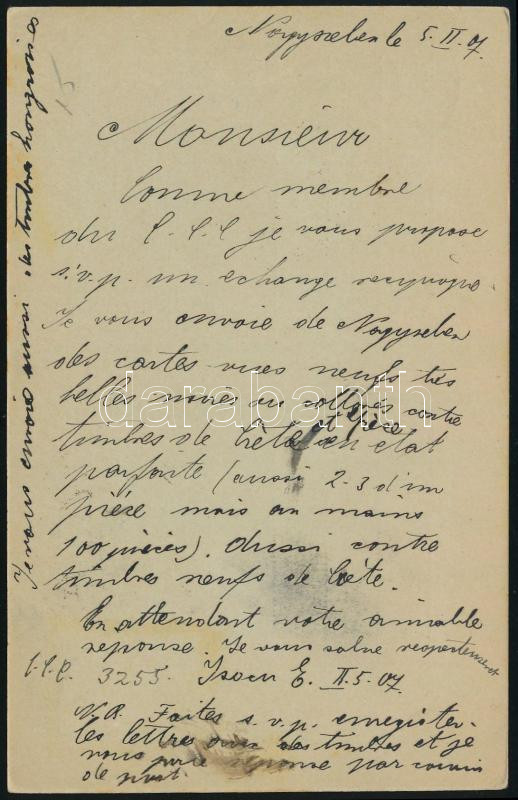 Nagyszeben le 5. II. 07.
Monsieur
Comme membre
du C.C.C je vous propose
s.v.p. un echange recyproque
Je vous envoie de Nagyszeben
des cartes vues neufs très
belles noires ou colorés contre
timbres de Crète en état
parfaite (aussi 2-3 d'un
pièce mais au moins
100 pièces). Aussi contre
timbres neufs de Crète.
En attendant votre aimable
reponse. Je vous salue respectement
C.C.C. 3255. E. II. 5. 07
N.B. Faites s.v.p. enregister
les lettres avec des timbres et je
vous reponse par
de
Je vous envoie aussi des timbres hongrois
darabanth